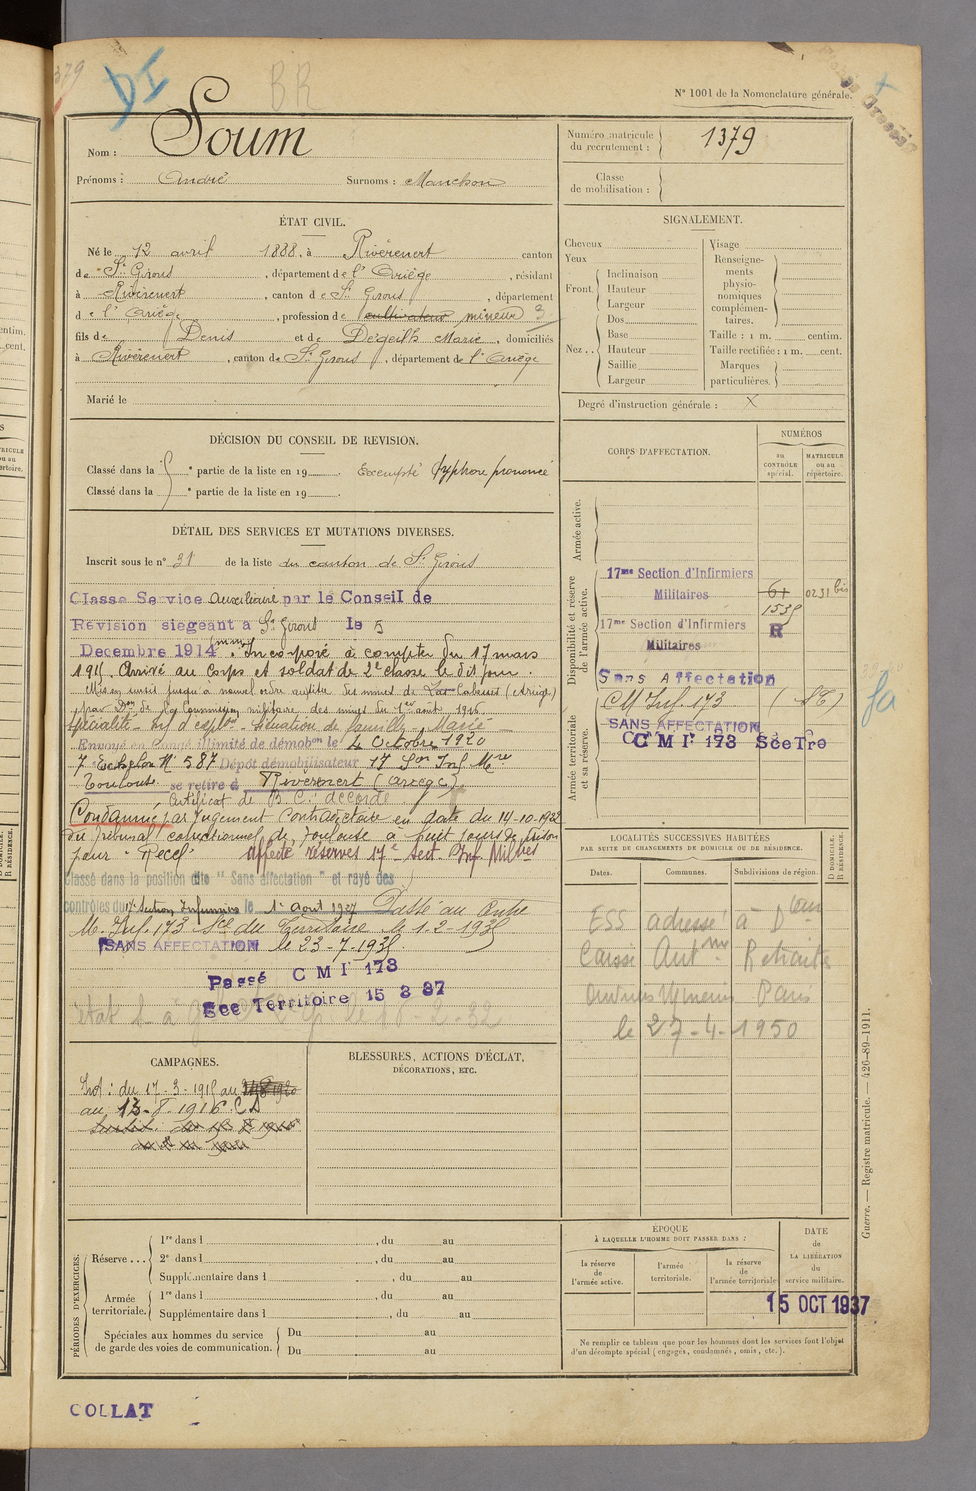 379
DI
BR
N° 1001 de la Nomenclature générale.
Nom : Soum
Prénoms : André Surnoms : Manchon
Numéro matricule du recrutement : 1379
Classe de mobilisation :
ÉTAT CIVIL.
Né le 12 avril 1888, à Rivèrenert canton
de St Girons, département de l'Ariège, résidant
à Rivèrenert, canton de St Girons, département
de l'Ariège, profession de cultivateur mineur 3
fils de Denis et de Dégeilh Marie, domiciliés
à Rivèrenert, canton de St Girons, département de l'Ariège
Marié le
SIGNALEMENT.
Cheveux
Yeux
Front. Inclinaison
Hauteur
Largeur
Nez .. Dos
Base
Hauteur
Saillie
Largeur
Visage
Renseignements physionomiques complémentaires.
Taille : 1 m. centim.
Taille rectifiée : 1 m. cent.
Marques particulières.
Degré d'instruction générale : X
DÉCISION DU CONSEIL DE REVISION.
Classé dans la e partie de la liste en 19 . Exempté Cyphose prononcée
Classé dans la e partie de la liste en 19 .
DÉTAIL DES SERVICES ET MUTATIONS DIVERSES.
Inscrit sous le n° 31 de la liste du canton de St Girons
Classé Service Auxiliaire par le Conseil de
Révision siégeant à St Girons le 5
Decembre 1914. Incorporé à compter du 17 mars
1915. Arrivé au Corps et soldat de 2e classe le dit jour.
Mis en sursis jusqu'à nouvel ordre au titre des mines de Las Cabesses (Ariège)
par Don de la Commission militaire des mines du 1er août 1916
Spécialité Inf d'expl on - Situation de famille Marié
Envoyé en Congé illimité de démobon le 4 Octobre 1920
7e Echelon N° 587 Dépôt démobilisateur 17 Son Inf Mre
Toulouse se retire à Rivèrenert (Ariège)
Certificat de B.C. : accordé
Condamné par jugement contradictoire en date du 14-10-1922
du tribunal correctionnel de Toulouse à huit jours de prison
pour "Recel" affecté réserves 17e Sect. Inf. Milres
Classé dans la position dite "Sans affectation" et rayé des
contrôles du 17e Section Infirmiers le 1er Aout 1927 Passé au Centre
M. Inf. 173 Sce du Territoire le 1-2-1935
SANS AFFECTATION le 23-7-1935
Passé C M I 173
Sce Territoire 15 3 37
CORPS D'AFFECTATION.
NUMÉROS
au CONTRÔLE spécial.
MATRICULE ou au répertoire.
Armée active.
Disponibilité et réserve de l'armée active.
17me Section d'Infirmiers
Militaires 61 0231 bis
1535
17me Section d'Infirmiers R
Militaires
Sans Affectation
Armée territoriale et sa réserve.
CM Inf. 173
SANS AFFECTATION
C M I 173 Sce Tre
LOCALITÉS SUCCESSIVES HABITÉES
PAR SUITE DE CHANGEMENTS DE DOMICILE OU DE RÉSIDENCE.
Dates. Communes. Subdivisions de région.
D DOMICILE. R RÉSIDENCE.
ESS adressé à D
Caisse Autme Retraite
Paris
le 27-4-1950
CAMPAGNES.
du 17-3-1915 au
au 13-8-1916 CD
BLESSURES, ACTIONS D'ÉCLAT,
DÉCORATIONS, ETC.
PÉRIODES D'EXERCICES.
Réserve ... 1re dans l , du au
2e dans l , du au
Supplémentaire dans l , du au
Armée territoriale. 1re dans l , du au
Supplémentaire dans l , du au
Spéciales aux hommes du service de garde des voies de communication. Du au
Du au
ÉPOQUE
À LAQUELLE L'HOMME DOIT PASSER DANS :
la réserve de l'armée active.
l'armée territoriale.
la réserve de l'armée territoriale
DATE de LA LIBÉRATION du service militaire.
15 OCT 1937
Ne remplir ce tableau que pour les hommes dont les services font l'objet
d'un décompte spécial (engagés, condamnés, omis, etc.).
Guerre. — Registre matricule. — 426-89-1911.
COLLAT